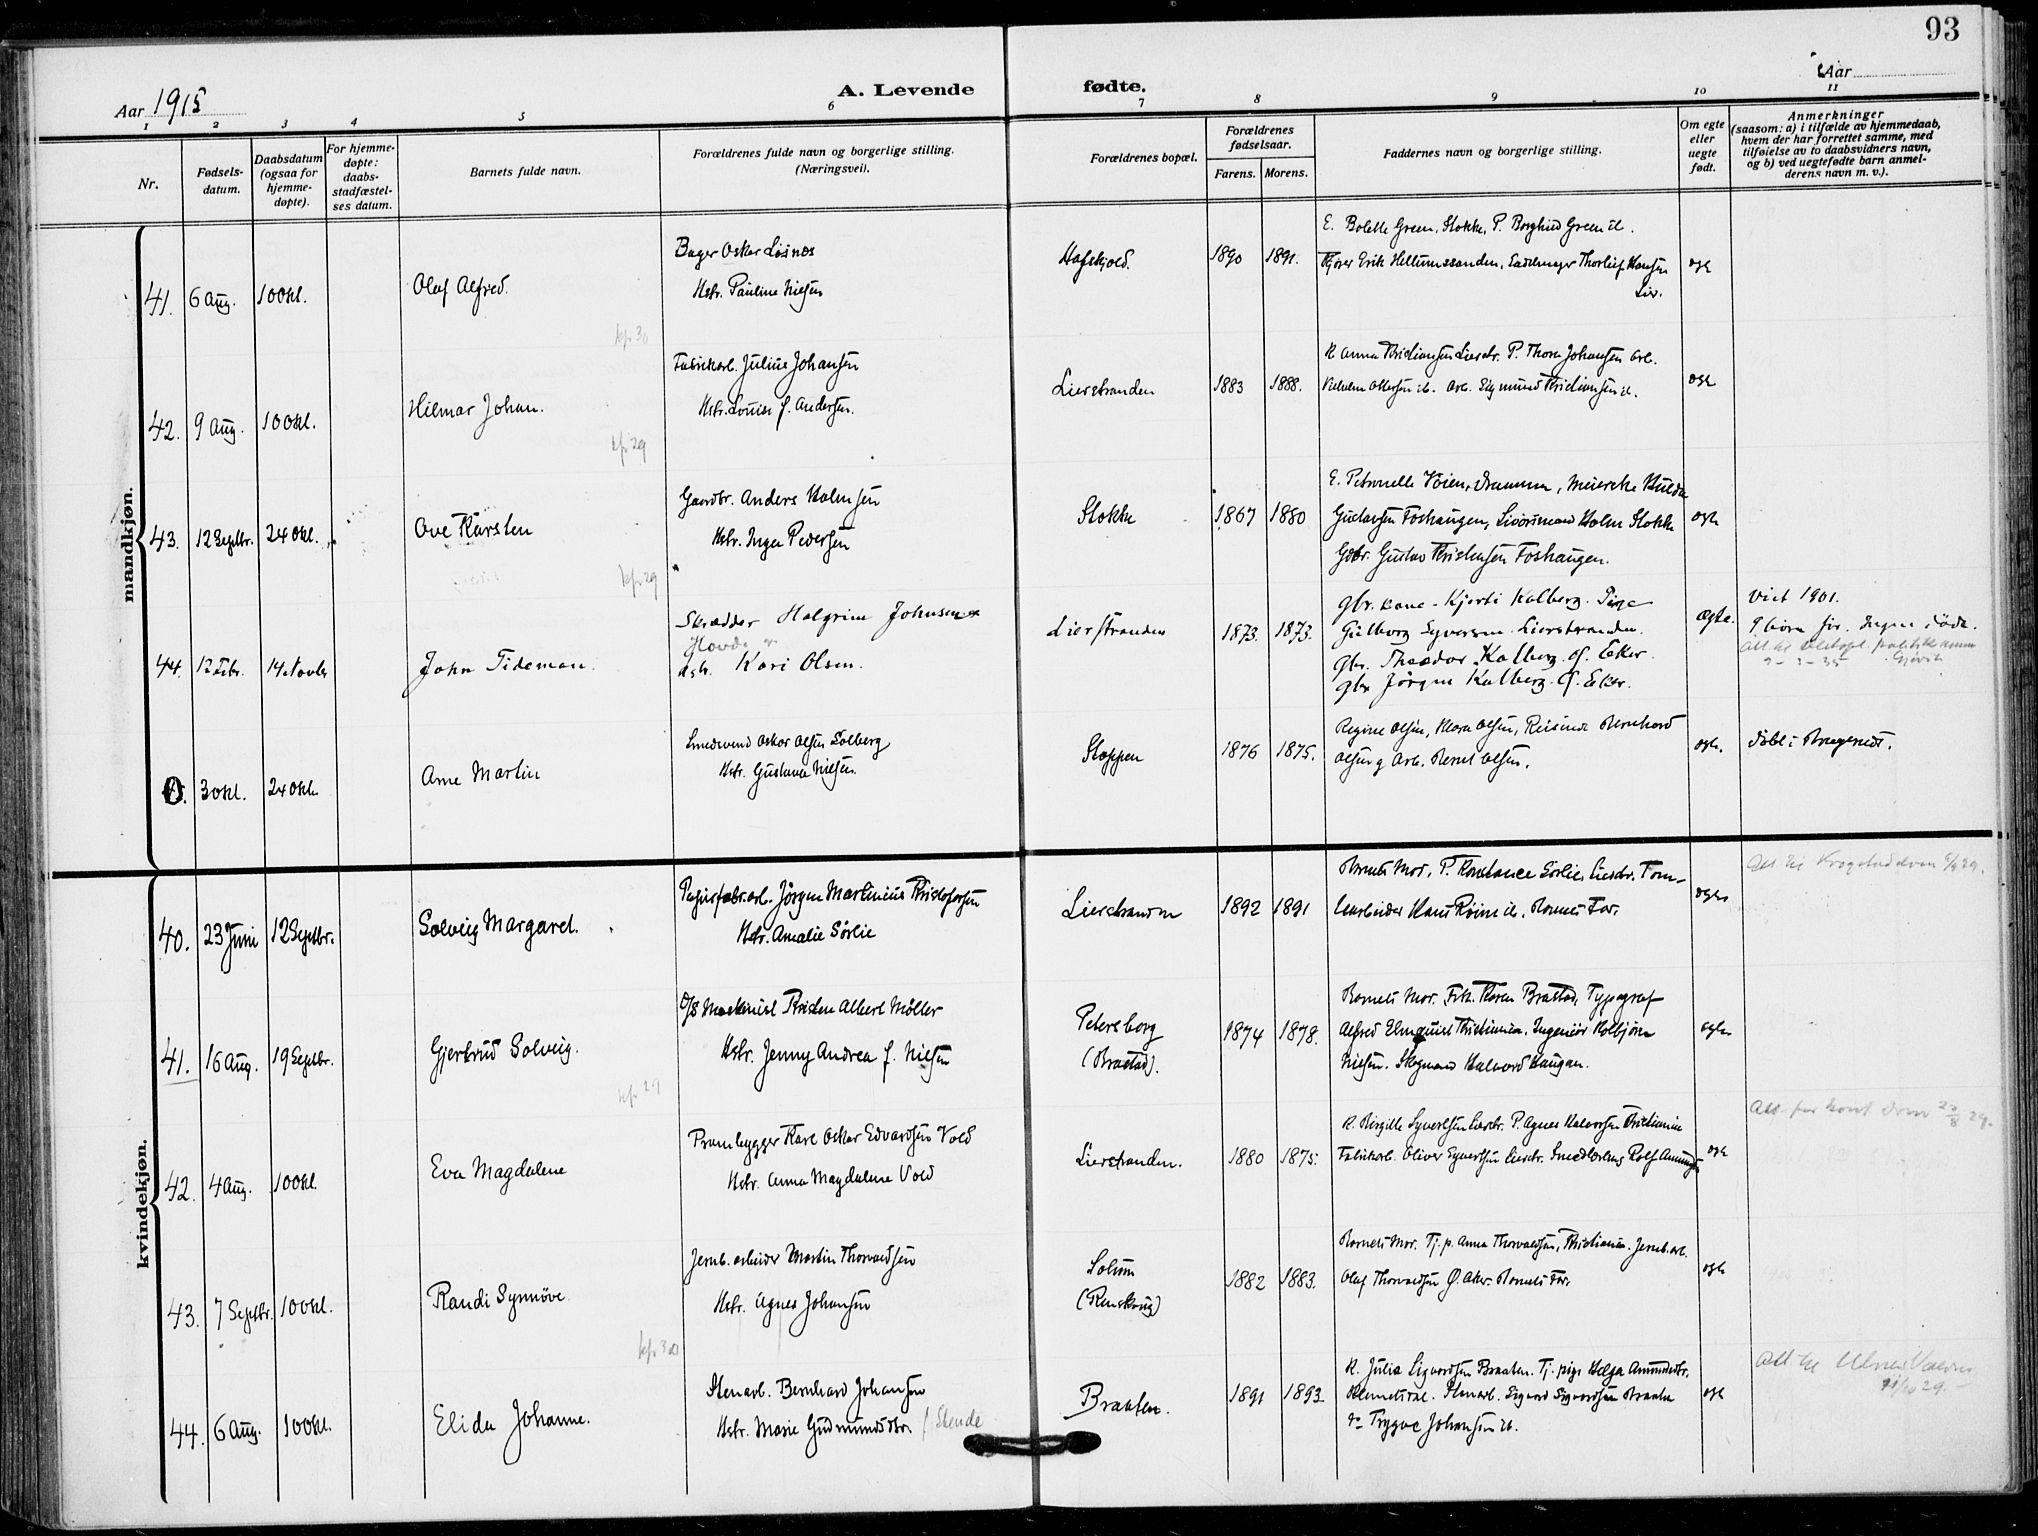 93
Aar 1915
A. Levende fødte.
Aar
1 2 3 4 5 6 7 8 9 10 11
Nr.
Fødsels-
datum.
Daabsdatum
(ogsaa for
hjemme-
døpte).
For hjemme-
døpte:
daabs-
stadfæstel-
ses datum.
Barnets fulde navn.
Forældrenes fulde navn og borgerlige stilling.
(Næringsvei).
Forældrenes bopæl.
Forældrenes
fødselsaar.
Farens. Morens.
Faddernes navn og borgerlige stilling.
Om egte
eller
uegte
født.
Anmerkninger
(saasom: a) i tilfælde av hjemmedaab,
hvem der har forrettet samme, med
tilføielse av to daabsvidners navn,
og b) ved uegtefødte barn anmel-
derens navn m. v.).
mandkjøn.
41. 6 Aug. 10 Okt. Olaf Alfred.
Bager Oskar Løsnes
Hstr. Pauline Nielsen
Hafskjold. 1890 1891.
E. Bolette Green, Stokke, P. Borghild Green ib.
Kjører Erik Hellumssanden, Sadelmager Thorleif Hansen
Lier.
egte
kfr 30
42. 9 Aug. 10 Okt. Hilmar Johan.
Fabrikarb. Julius Johansen
Hstr. Louise f. Andersen.
Lierstranden 1883 1888.
K. Anna Kristiansen Lierstr. P. Thora Johansen Arb.
ib. Arb. Sigmund Kristiansen ib.
egte
kfr 29
43. 12 Septbr. 24 Okt. Ove Karsten
Gaardbr. Anders Halvorsen
Hstr. Inga Pedersen
Stokke 1867 1880
E. Petronelle Vøien, Drammen, Meierske Hulda
Gustavsen Foshaugen, Holm Stokke
Gdbr. Gustav Kristensen Foshaugen.
egte
kfr 29
44. 12 Febr. 14 Novbr John Tideman.
Skrædder Halgrim Johnsen
Hovde
Hstr. Kari Olsen.
Lierstranden 1873. 1873.
gbr. kone Kjersti Kalberg. Pige
Gulborg Syversen. Lierstranden.
gbr. Theodor Kalberg. Ø. Eker.
gbr. Jørgen Kalberg. Ø. Eker.
Ægte.
Viet 1901.
9 børn før. Ingen døde.
Gjøvik
0. 3 Okt. 24 Okt. Arne Martin
Smedsvend Oskar Olsen Solberg
Hstr. Gustava Nielsen.
Stoppen 1876 1875.
Regine Olsen, Klara Olsen, Reisende Bernhard
Olsen og Arb. Bernt Olsen.
egte.
døbt i Bragernes.
kvindekjøn.
40. 23 Juni 12 Septbr. Solveig Margaret.
Papirfabr.arb. Jørgen Martinius Kristofersen
Hstr. Amalie Sørlie
Lierstranden 1892 1891
Barnets Mor, P. Konstance Sørlie, Lierstr. Tom-
tearbeider Hans Røine ib. Barnets Far.
egte
Att. til Krogstadelven 5/4 29.
41. 16 Aug. 19 Septbr. Gjertrud Solveig.
D/S Maskinist Kristen Albert Møller
Hstr. Jenny Andrea f. Nielsen
Petersborg
(Brastad). 1874 1878.
Barnets Mor. Frk. Karen Brastad, Typograf
Alfred Elmquist Kristiania. Ingeniør Kolbjørn
Nielsen. Skogmand Halvord Haugan.
egte
kfr 29
42. 4 Aug. 10 Okt. Eva Magdalene
Prambygger Karl Oskar Edvardsen Vold
Hstr. Anna Magdalene Vold
Lierstranden. 1880 1875.
K. Birgitte Syvertsen Lierstr. P. Agnes Halvorsen Kristiania
Fabrikarb. Oliver Syvertsen Lierstr. Smedlærling Rolf Amundsen
egte
Att. for konf. Drm 23/8 29.
43. 7 Septbr. 10 Okt. Randi Synnøve.
Jernb.arbeider Martin Thorvaldsen
Hstr. Agnes Johansen
Solum
(Renskaug) 1882 1883.
Barnets Mor. Tj. p. Anna Thorvaldsen, Kristiania. Jernb.arb.
Olaf Thorvaldsen Ø. Aker. Barnets Far.
egte
kfr 30
44. 6 Aug. 10 Okt. Elida Johanne.
Stenarb. Bernhard Johansen
Hstr. Marie Gudmundsdtr. f. Stende
Braaten. 1891 1893
K. Julia Sigvardsen Braaten. Tj. pige Helga Amundsdtr.
Klemetsrud. Stenarb. Sigvard Sigvardsen Braaten
do Trygve Johansen ib.
egte
Att. til Ulnes Valdres
11/10 29.